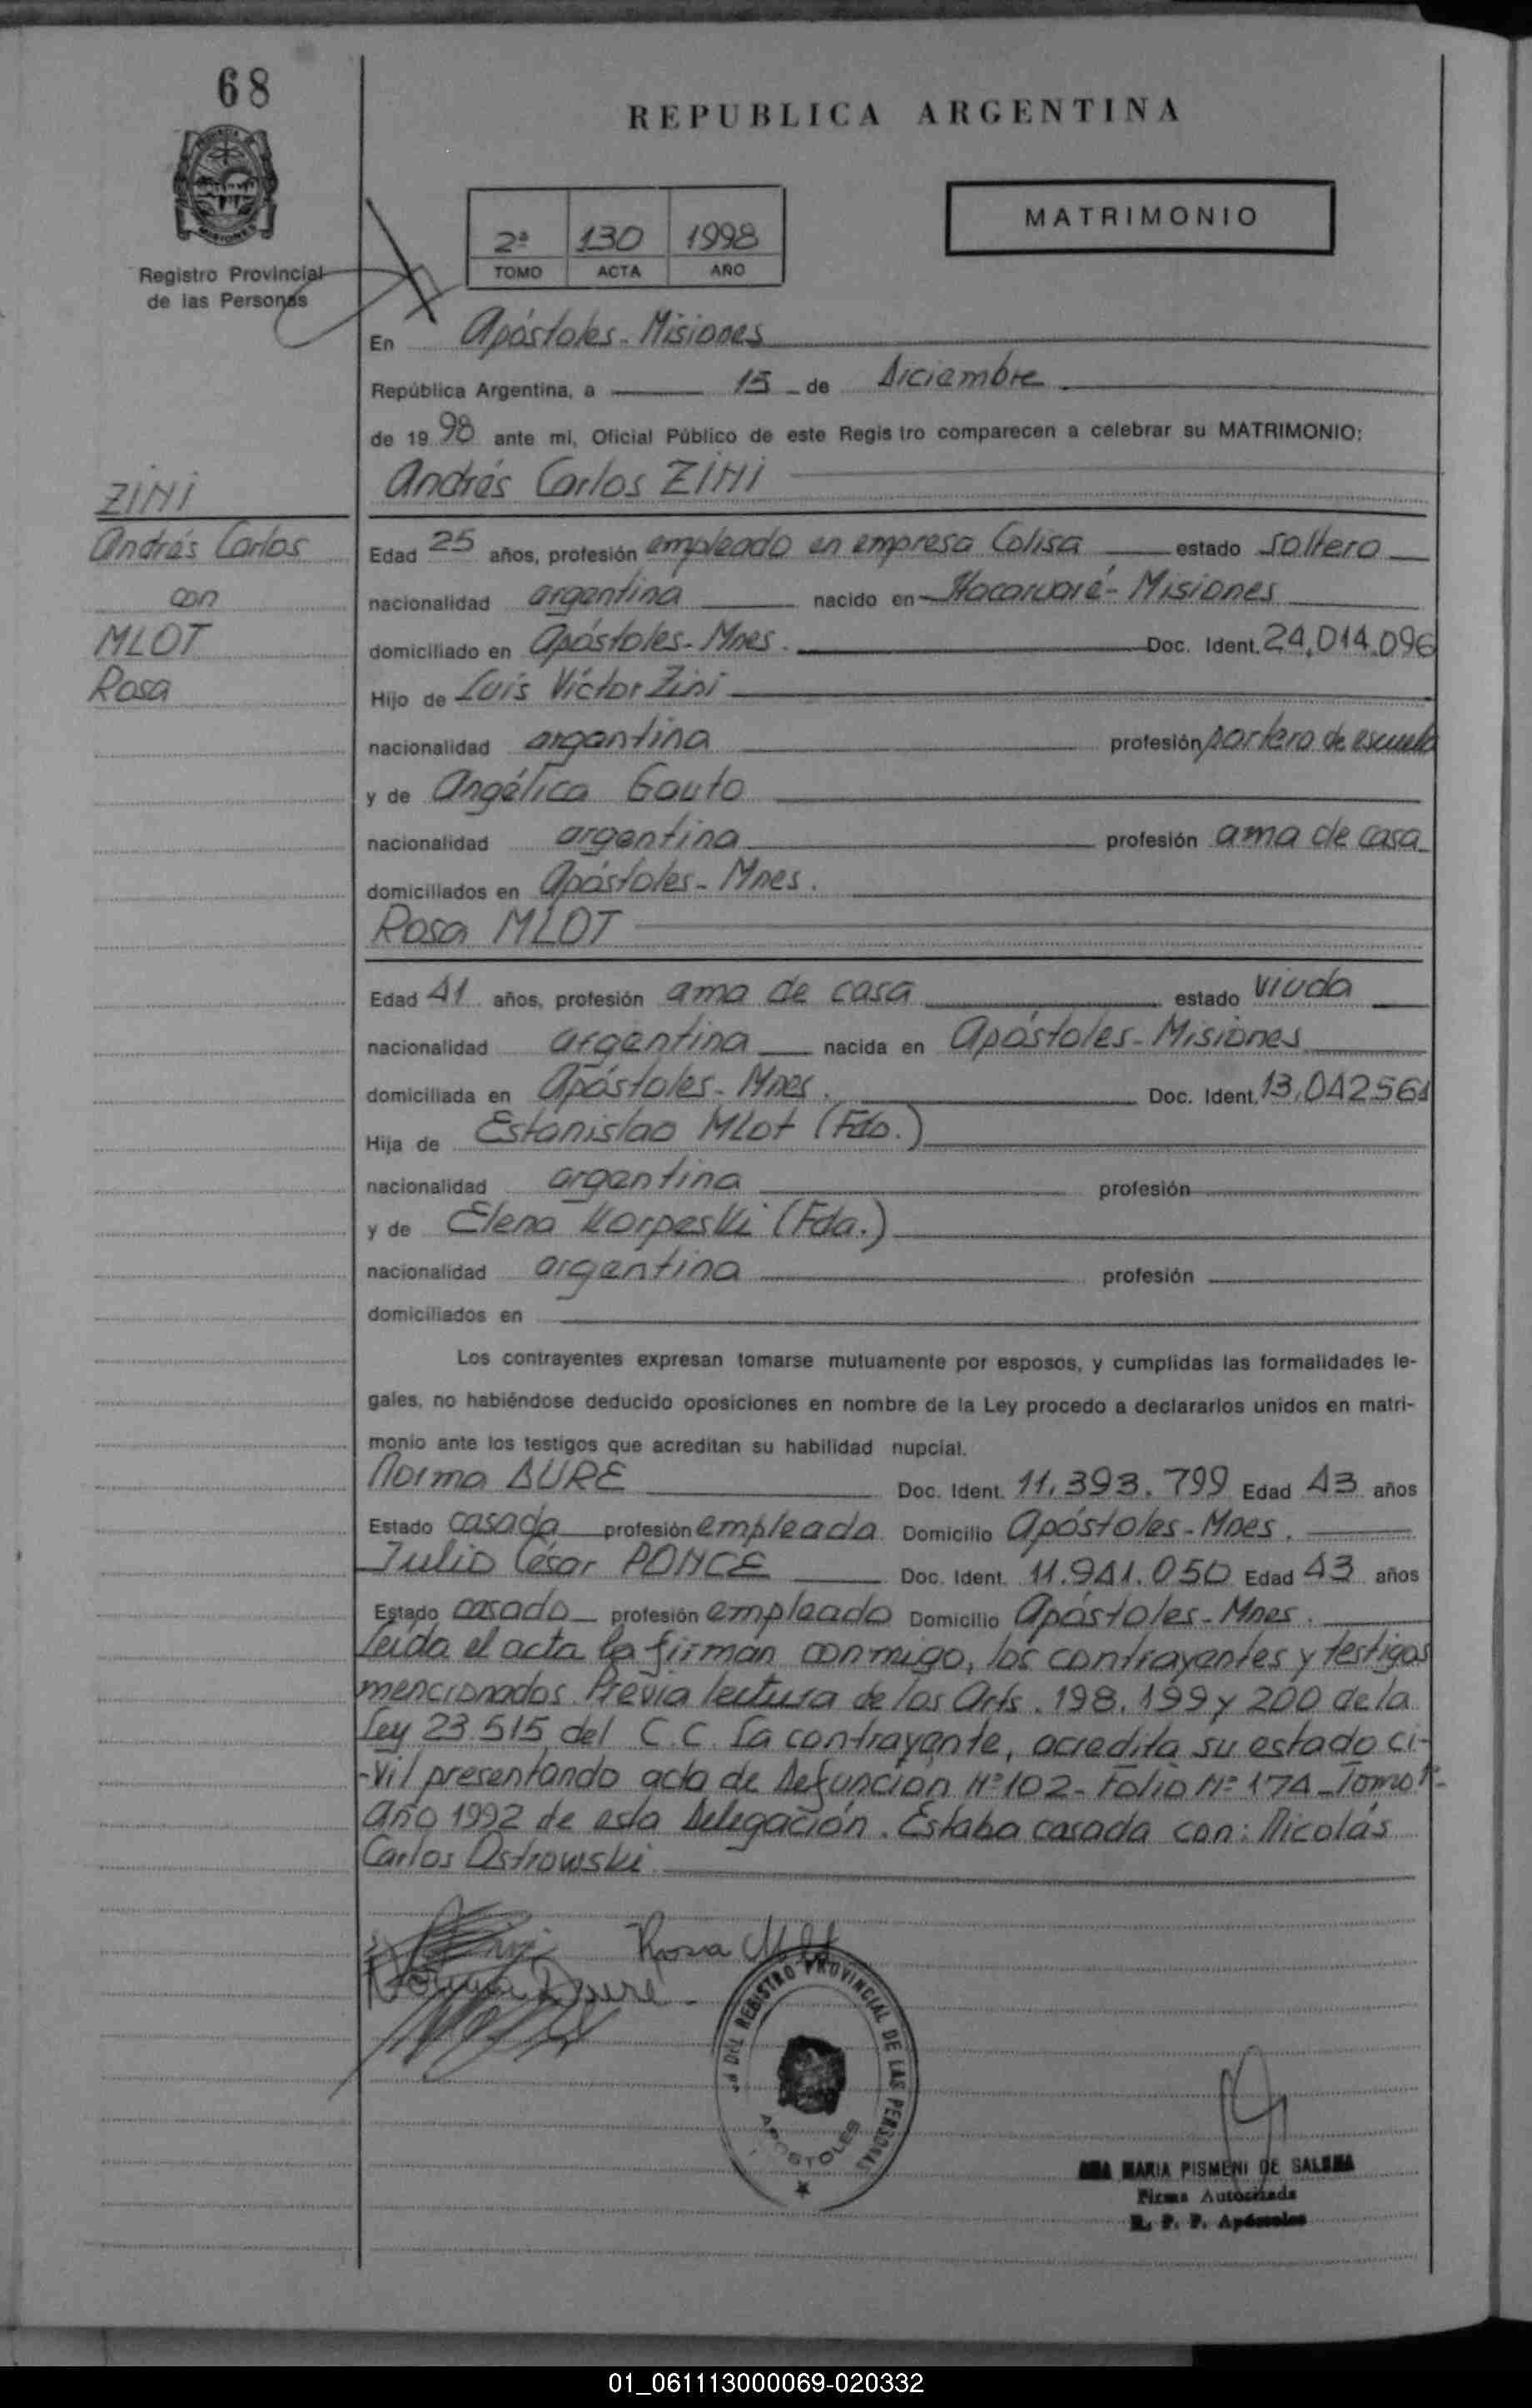 68
REPUBLICA ARGENTINA
MATRIMONIO
2ª 130 1998
TOMO ACTA AÑO
Registro Provincial
de las Personas
En Apóstoles - Misiones
República Argentina, a 15 de Diciembre
de 1998 ante mi, Oficial Público de este Registro comparecen a celebrar su MATRIMONIO:
ZINI
Andrés Carlos
con
MLOT
Rosa
Andrés Carlos ZINI
Edad 25 años, profesión empleado en empresa Colisa estado soltero
nacionalidad argentina nacido en Itacaruaré - Misiones
domiciliado en Apóstoles - Mnes. Doc. Ident. 24.014.096
Hijo de Luis Víctor Zini
nacionalidad argentina profesión portero de escuela
y de Angélica Gauto
nacionalidad argentina profesión ama de casa
domiciliados en Apóstoles - Mnes.
Rosa MLOT
Edad 41 años, profesión ama de casa estado viuda
nacionalidad argentina nacida en Apóstoles - Misiones
domiciliada en Apóstoles - Mnes. Doc. Ident. 13.042561
Hija de Estanislao Mlot (Fdo.)
nacionalidad argentina profesión
y de Elena Korpeski (Fda.)
nacionalidad argentina profesión
domiciliados en
Los contrayentes expresan tomarse mutuamente por esposos, y cumplidas las formalidades le-
gales, no habiéndose deducido oposiciones en nombre de la Ley procedo a declararlos unidos en matri-
monio ante los testigos que acreditan su habilidad nupcial.
Norma DURE Doc. Ident. 11.393.799 Edad 43 años
Estado casada profesión empleada Domicilio Apóstoles - Mnes.
Julio César PONCE Doc. Ident. 11.941.050 Edad 43 años
Estado casado profesión empleado Domicilio Apóstoles - Mnes.
Leída el acta la firman conmigo, los contrayentes y testigos
mencionados. Previa lectura de los Arts. 198, 199 y 200 de la
Ley 23.515 del C.C. La contrayente, acredita su estado ci-
-vil presentando acta de Defunción Nº 102 - Folio Nº 174 - Tomo 1º-
Año 1992 de esta Delegación. Estaba casada con: Nicolás
Carlos Ostrowski
Rosa Mlot
Norma Dure
DEL REGISTRO PROVINCIAL DE LAS PERSONAS
APOSTOLES
ANA MARIA PISMENI DE SALENA
Firma Autorizada
R. P. P. Apóstoles
01_061113000069-020332